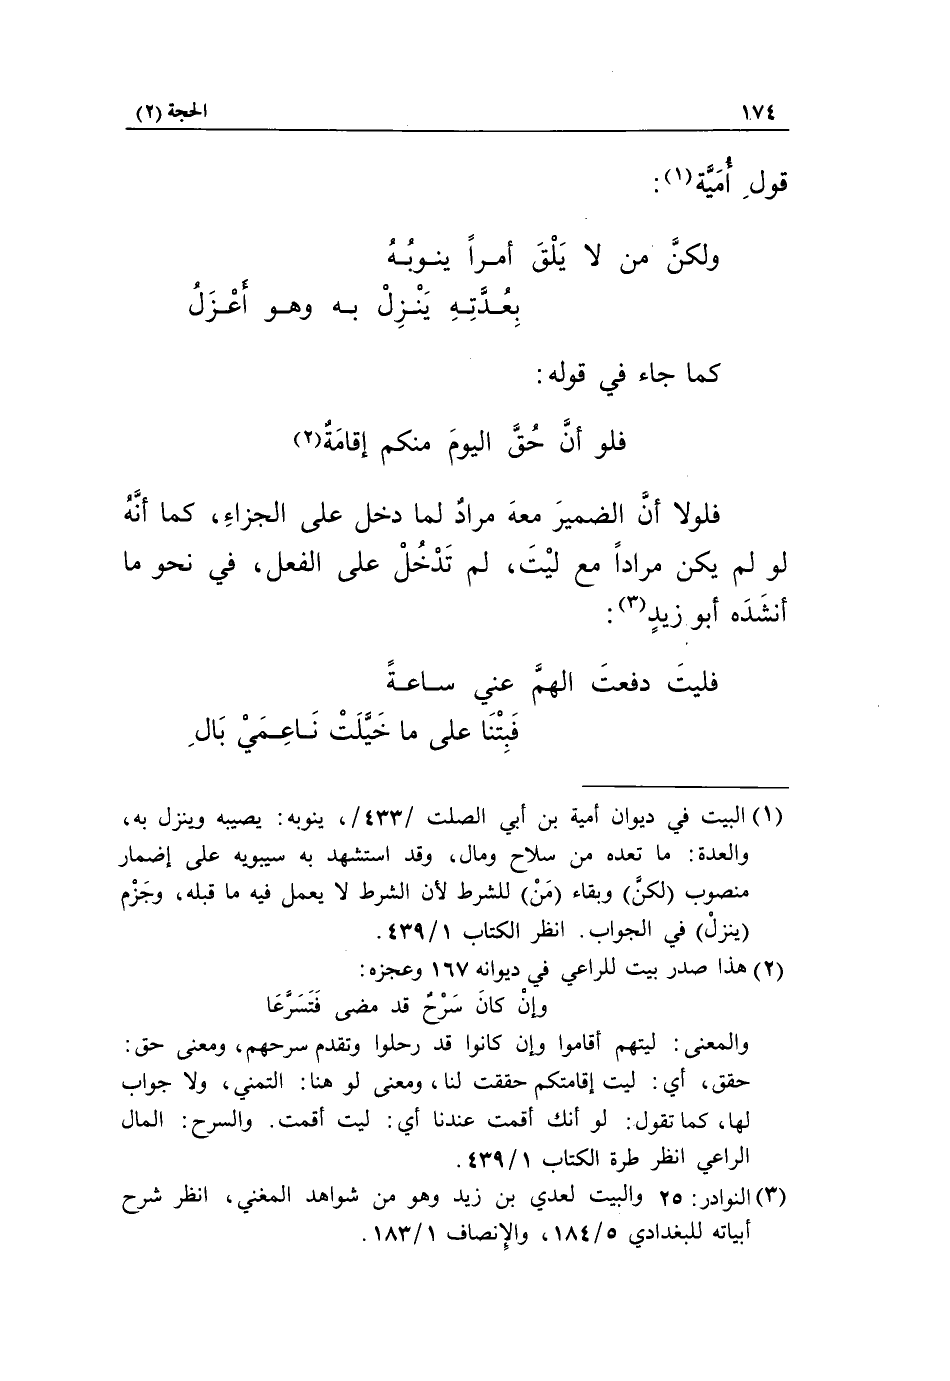 ١٧٤ الحجة (٢)
قولِ أُمَيَّة(١):
ولكنَّ من لا يَلْقَ أمـراً ينـوبُـهُ
بِعُـدَّتِـهِ يَنْـزِلْ بـه وهـو أَعْـزَلُ
كما جاء في قوله:
فلو أنَّ حُقَّ اليومَ منكم إقامَةٌ(٢)
فلولا أنَّ الضميرَ معهَ مرادٌ لما دخل على الجزاءِ، كما أنَّهُ
لو لم يكن مراداً مع ليْتَ، لم تَدْخُلْ على الفعل، في نحو ما
أنشَدَه أبو زيدٍ(٣):
فليتَ دفعتَ الهمَّ عني ساعـةً
فَبِتْنَا على ما خَيَّلَتْ نَـاعِـمَيْ بَالِ
(١) البيت في ديوان أمية بن أبي الصلت /٤٣٣/، ينوبه: يصيبه وينزل به،
والعدة: ما تعده من سلاح ومال، وقد استشهد به سيبويه على إضمار
منصوب (لكنَّ) وبقاء (مَنْ) للشرط لأن الشرط لا يعمل فيه ما قبله، وجَزْم
(ينزلْ) في الجواب. انظر الكتاب ٤٣٩/١.
(٢) هذا صدر بيت للراعي في ديوانه ١٦٧ وعجزه:
وإنْ كانَ سَرْحٌ قد مضى فَتَسَرَّعَا
والمعنى: ليتهم أقاموا وإن كانوا قد رحلوا وتقدم سرحهم، ومعنى حق:
حقق، أي: ليت إقامتكم حققت لنا، ومعنى لو هنا: التمني، ولا جواب
لها، كما تقول: لو أنك أقمت عندنا أي: ليت أقمت. والسرح: المال
الراعي انظر طرة الكتاب ٤٣٩/١.
(٣) النوادر: ٢٥ والبيت لعدي بن زيد وهو من شواهد المغني، انظر شرح
أبياته للبغدادي ١٨٤/٥، والإنصاف ١٨٣/١.